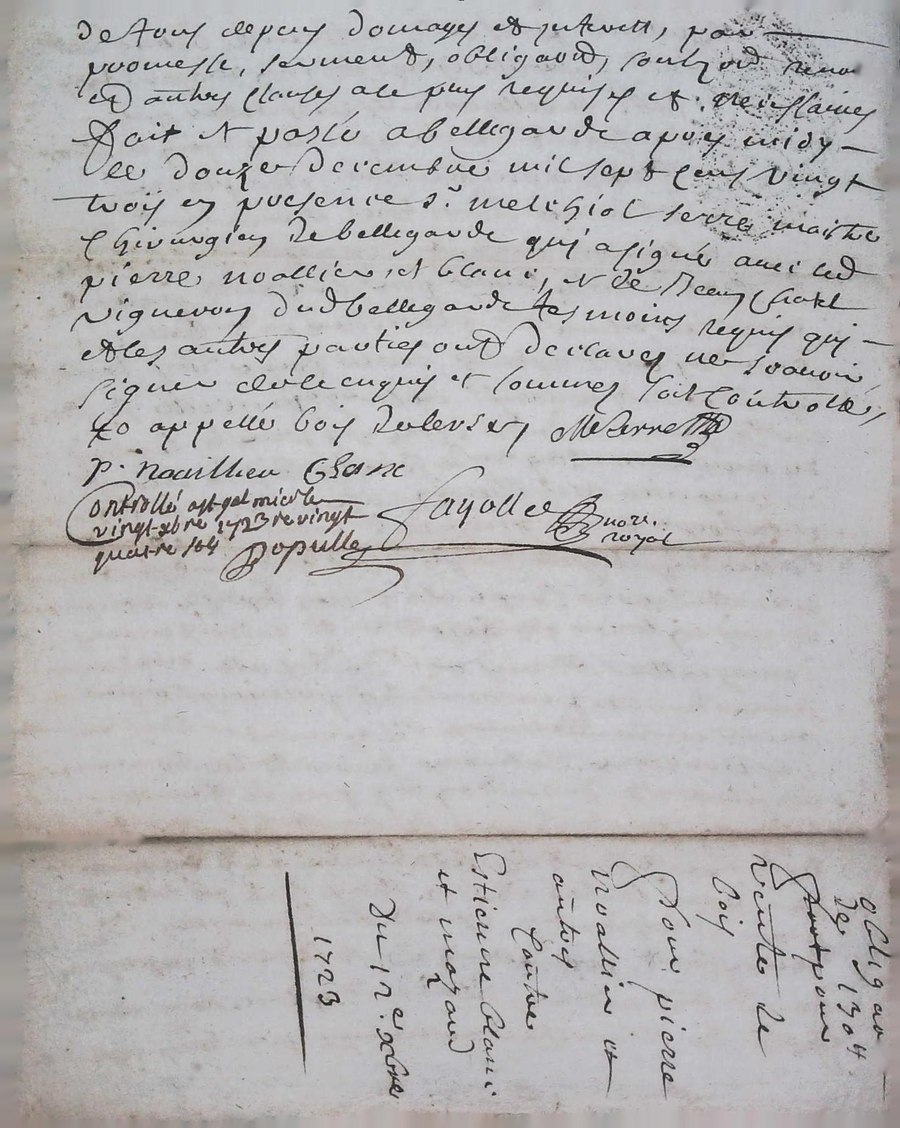 de tous depens domages et interest, par
promesse, serment, obligaon, soubzon renon
et autres clauses a ce plus requises et necessaires
fait et passé a bellegarde apres midy
le douze decembre mil sept cens vingt
trois en presence Sr. melchiol serre maitre
Chirurgien de bellegarde qui a signé avec led
pierre noallieu et blanc, et de
vigneron dud bellegarde tesmoins requis qui
et les autres parties ont declarés ne scavoir
signer de ce enquis et sommes soit Controllé,
appellé bois MSerre
p. noailheu Glanc
Controllé a st galmier le
vingt xbre 1723 re vingt
quatre s
Populle
fayolle
nore.
royal
obligaon
de 130#
pour
vente de
bois
Pour pierre
Noallieu et
autres
Contre
Estienne blanc
et mazand
Du 12e. xbre
1723